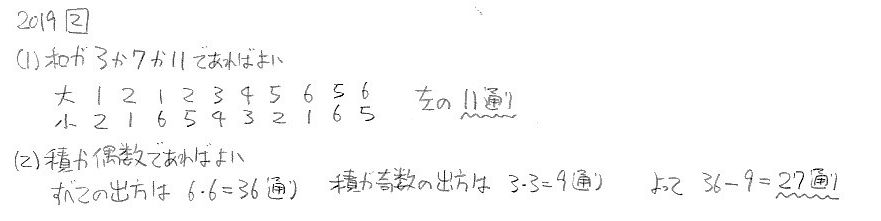 2019 2
(1) 和が3か7か11であればよい
大 1 2 1 2 3 4 5 6 5 6 左の 11通り
小 2 1 6 5 4 3 2 1 6 5
(2) 積が偶数であればよい
すべての出方は 6・6=36(通り) 積が奇数の出方は 3・3=9(通り) よって 36-9=27通り